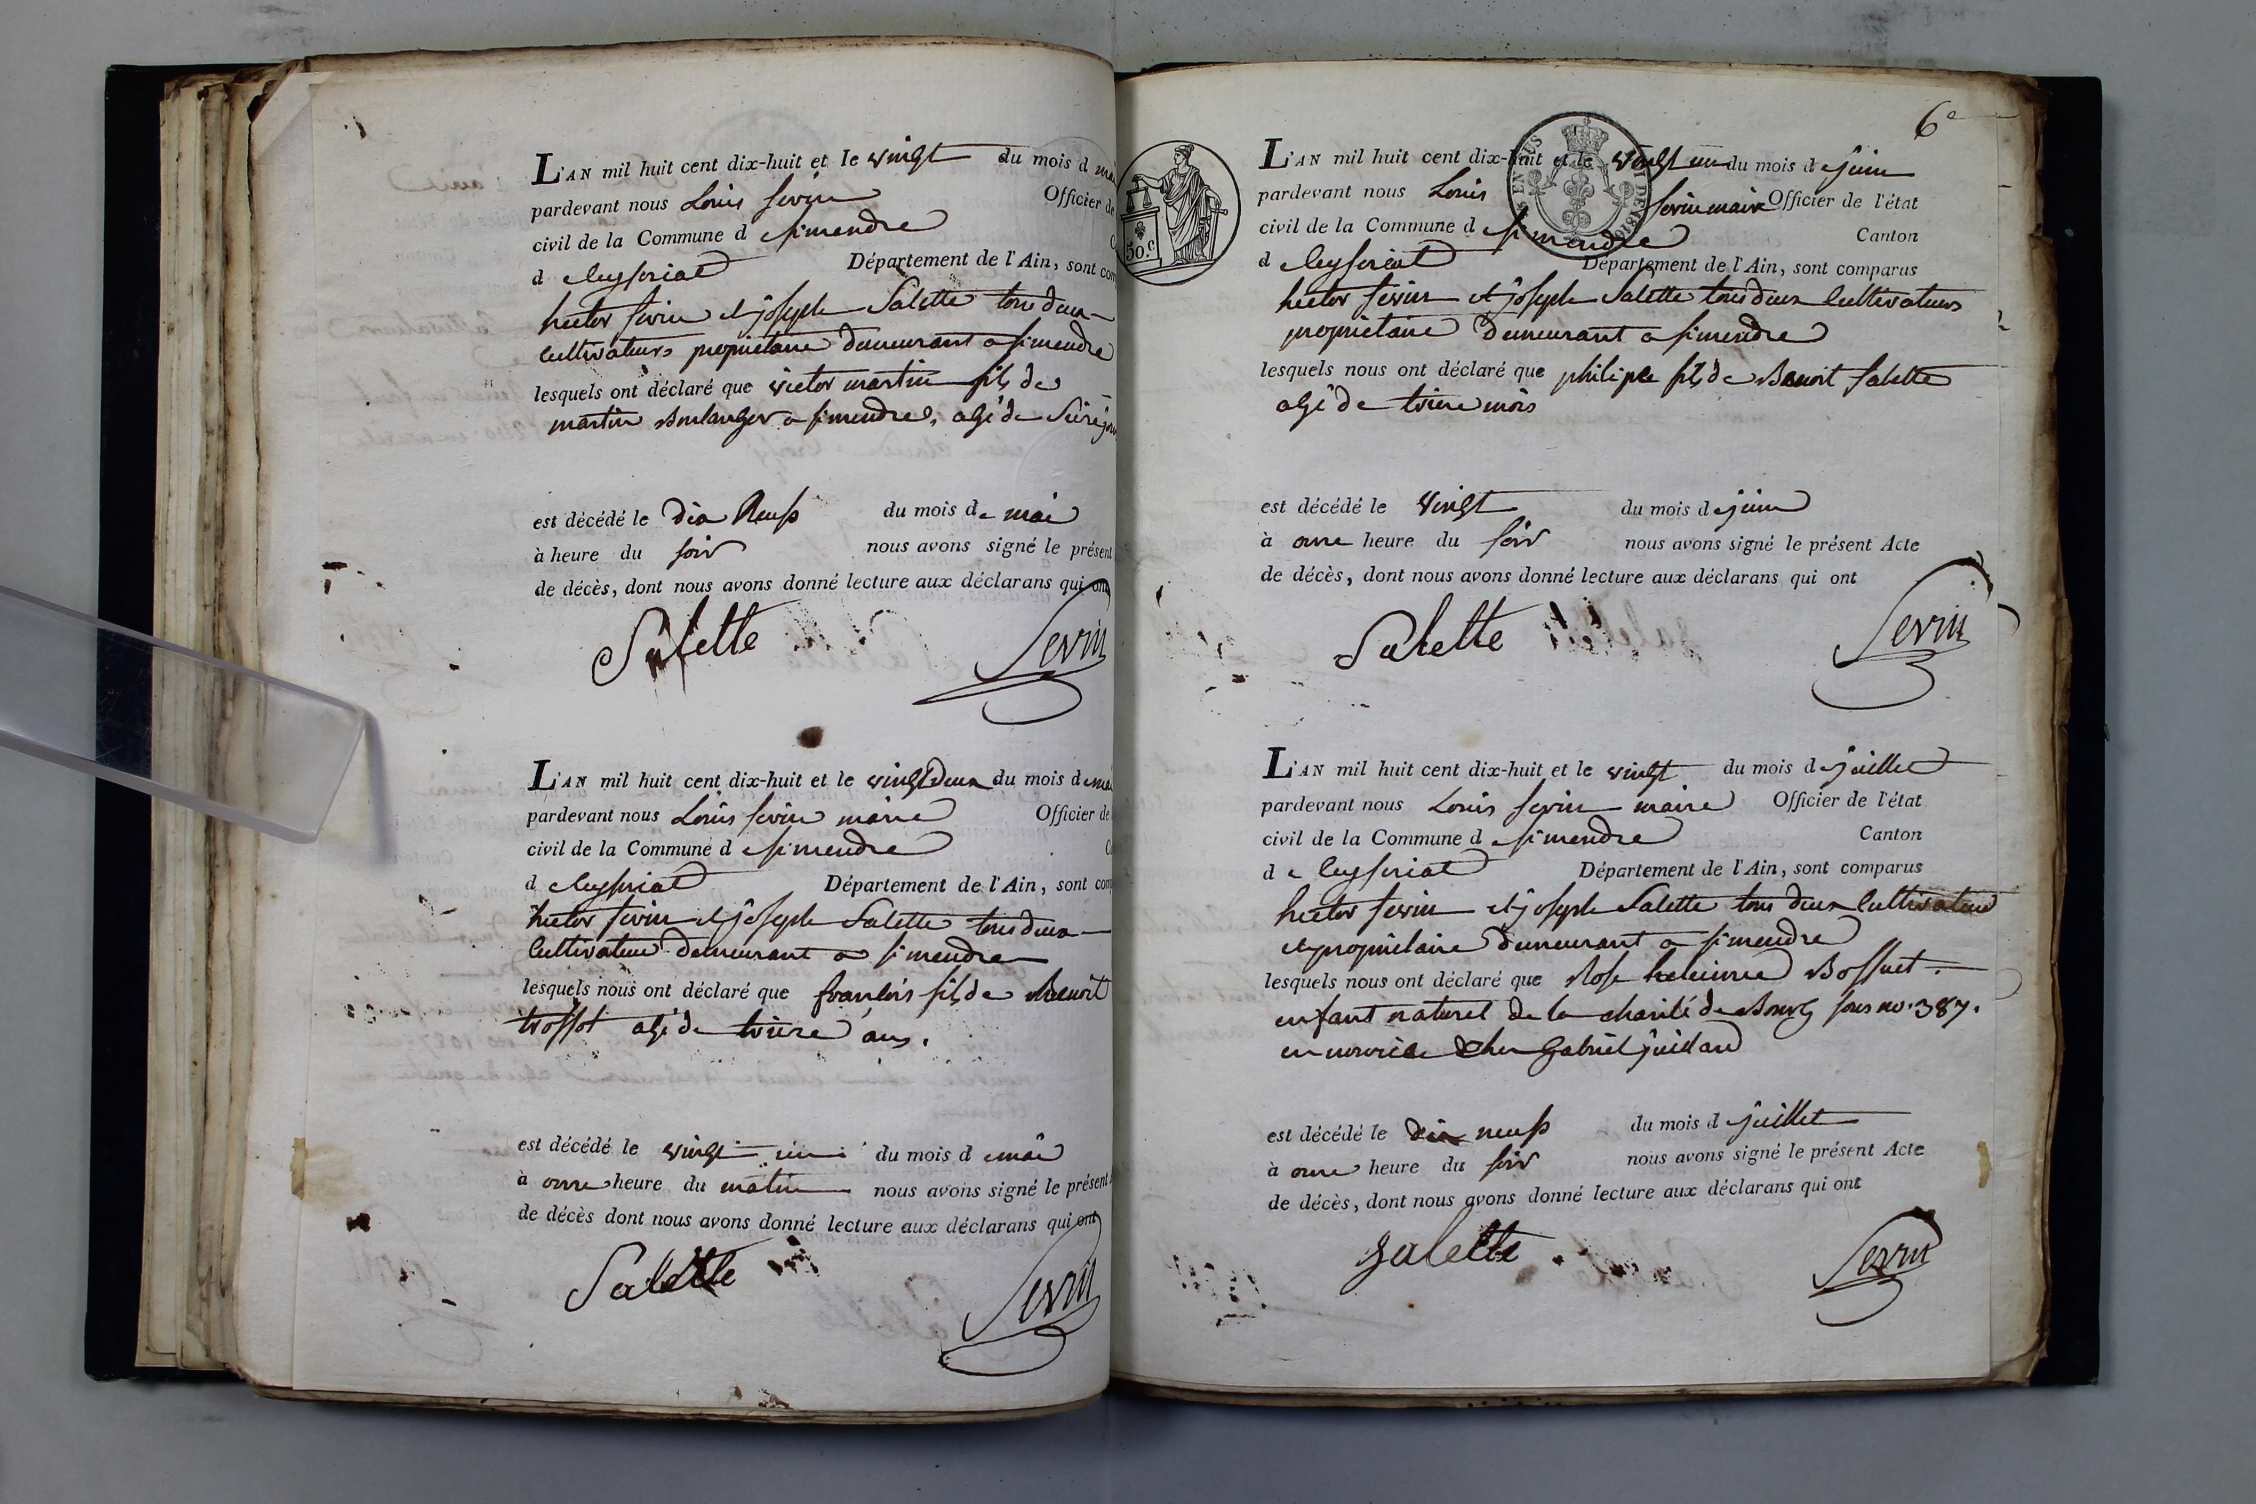 L'AN mil huit cent dix-huit et le vingt du mois d mai
pardevant nous Louis Sevin Officier de
civil de la Commune d Simendre
d Ceyseriat Département de l'Ain, sont com
hector sevin et joseph Salette tous deux
cultivateurs propriétaire demeurant a simendre
lesquels ont déclaré que victor martin fils de
martin Boulanger a simendre, agé de
est décédé le dix neuf du mois de mai
à heure du soir nous avons signé le présent
de décès, dont nous avons donné lecture aux déclarans qui ont
Salette Sevin
L'AN mil huit cent dix-huit et le vingt deux du mois d mai
pardevant nous Louis Sevin maire Officier de
civil de la Commune d Simendre
d Ceyseriat Département de l'Ain, sont com
hector sevin et joseph Salette tous deux
cultivateur demeurant a simendre
lesquels nous ont déclaré que françois fils de Benoit
trossot agé de treize ans.
est décédé le vingt un du mois d mai
à onze heure du matin nous avons signé le présent
de décès dont nous avons donné lecture aux déclarans qui ont
Salette Sevin
6e
50.c
L'AN mil huit cent dix-huit et le vingt un du mois d juin
pardevant nous Louis Sevin maire Officier de l'état
civil de la Commune d Simendre Canton
d Ceyseriat Département de l'Ain, sont comparus
hector sevin et joseph Salette tous deux Cultivateurs
propriétaire demeurant a simendre
lesquels nous ont déclaré que philipe fils de Benoit Salette
agé de treize mois
est décédé le vingt du mois d juin
à onze heure du soir nous avons signé le présent Acte
de décès, dont nous avons donné lecture aux déclarans qui ont
Salette Sevin
L'AN mil huit cent dix-huit et le vingt du mois d juillet
pardevant nous Louis Sevin maire Officier de l'état
civil de la Commune d Simendre Canton
de Ceyseriat Département de l'Ain, sont comparus
hector sevin et joseph Salette tous deux Cultivateur
et propriétaire demeurant a simendre
lesquels nous ont déclaré que Rose Bossuet
enfant naturel de la charité de Bourg sous no. 387.
en nourice chez Gabriel
est décédé le dix neuf du mois d juillet
à onze heure du soir nous avons signé le présent Acte
de décès, dont nous avons donné lecture aux déclarans qui ont
Salette Sevin